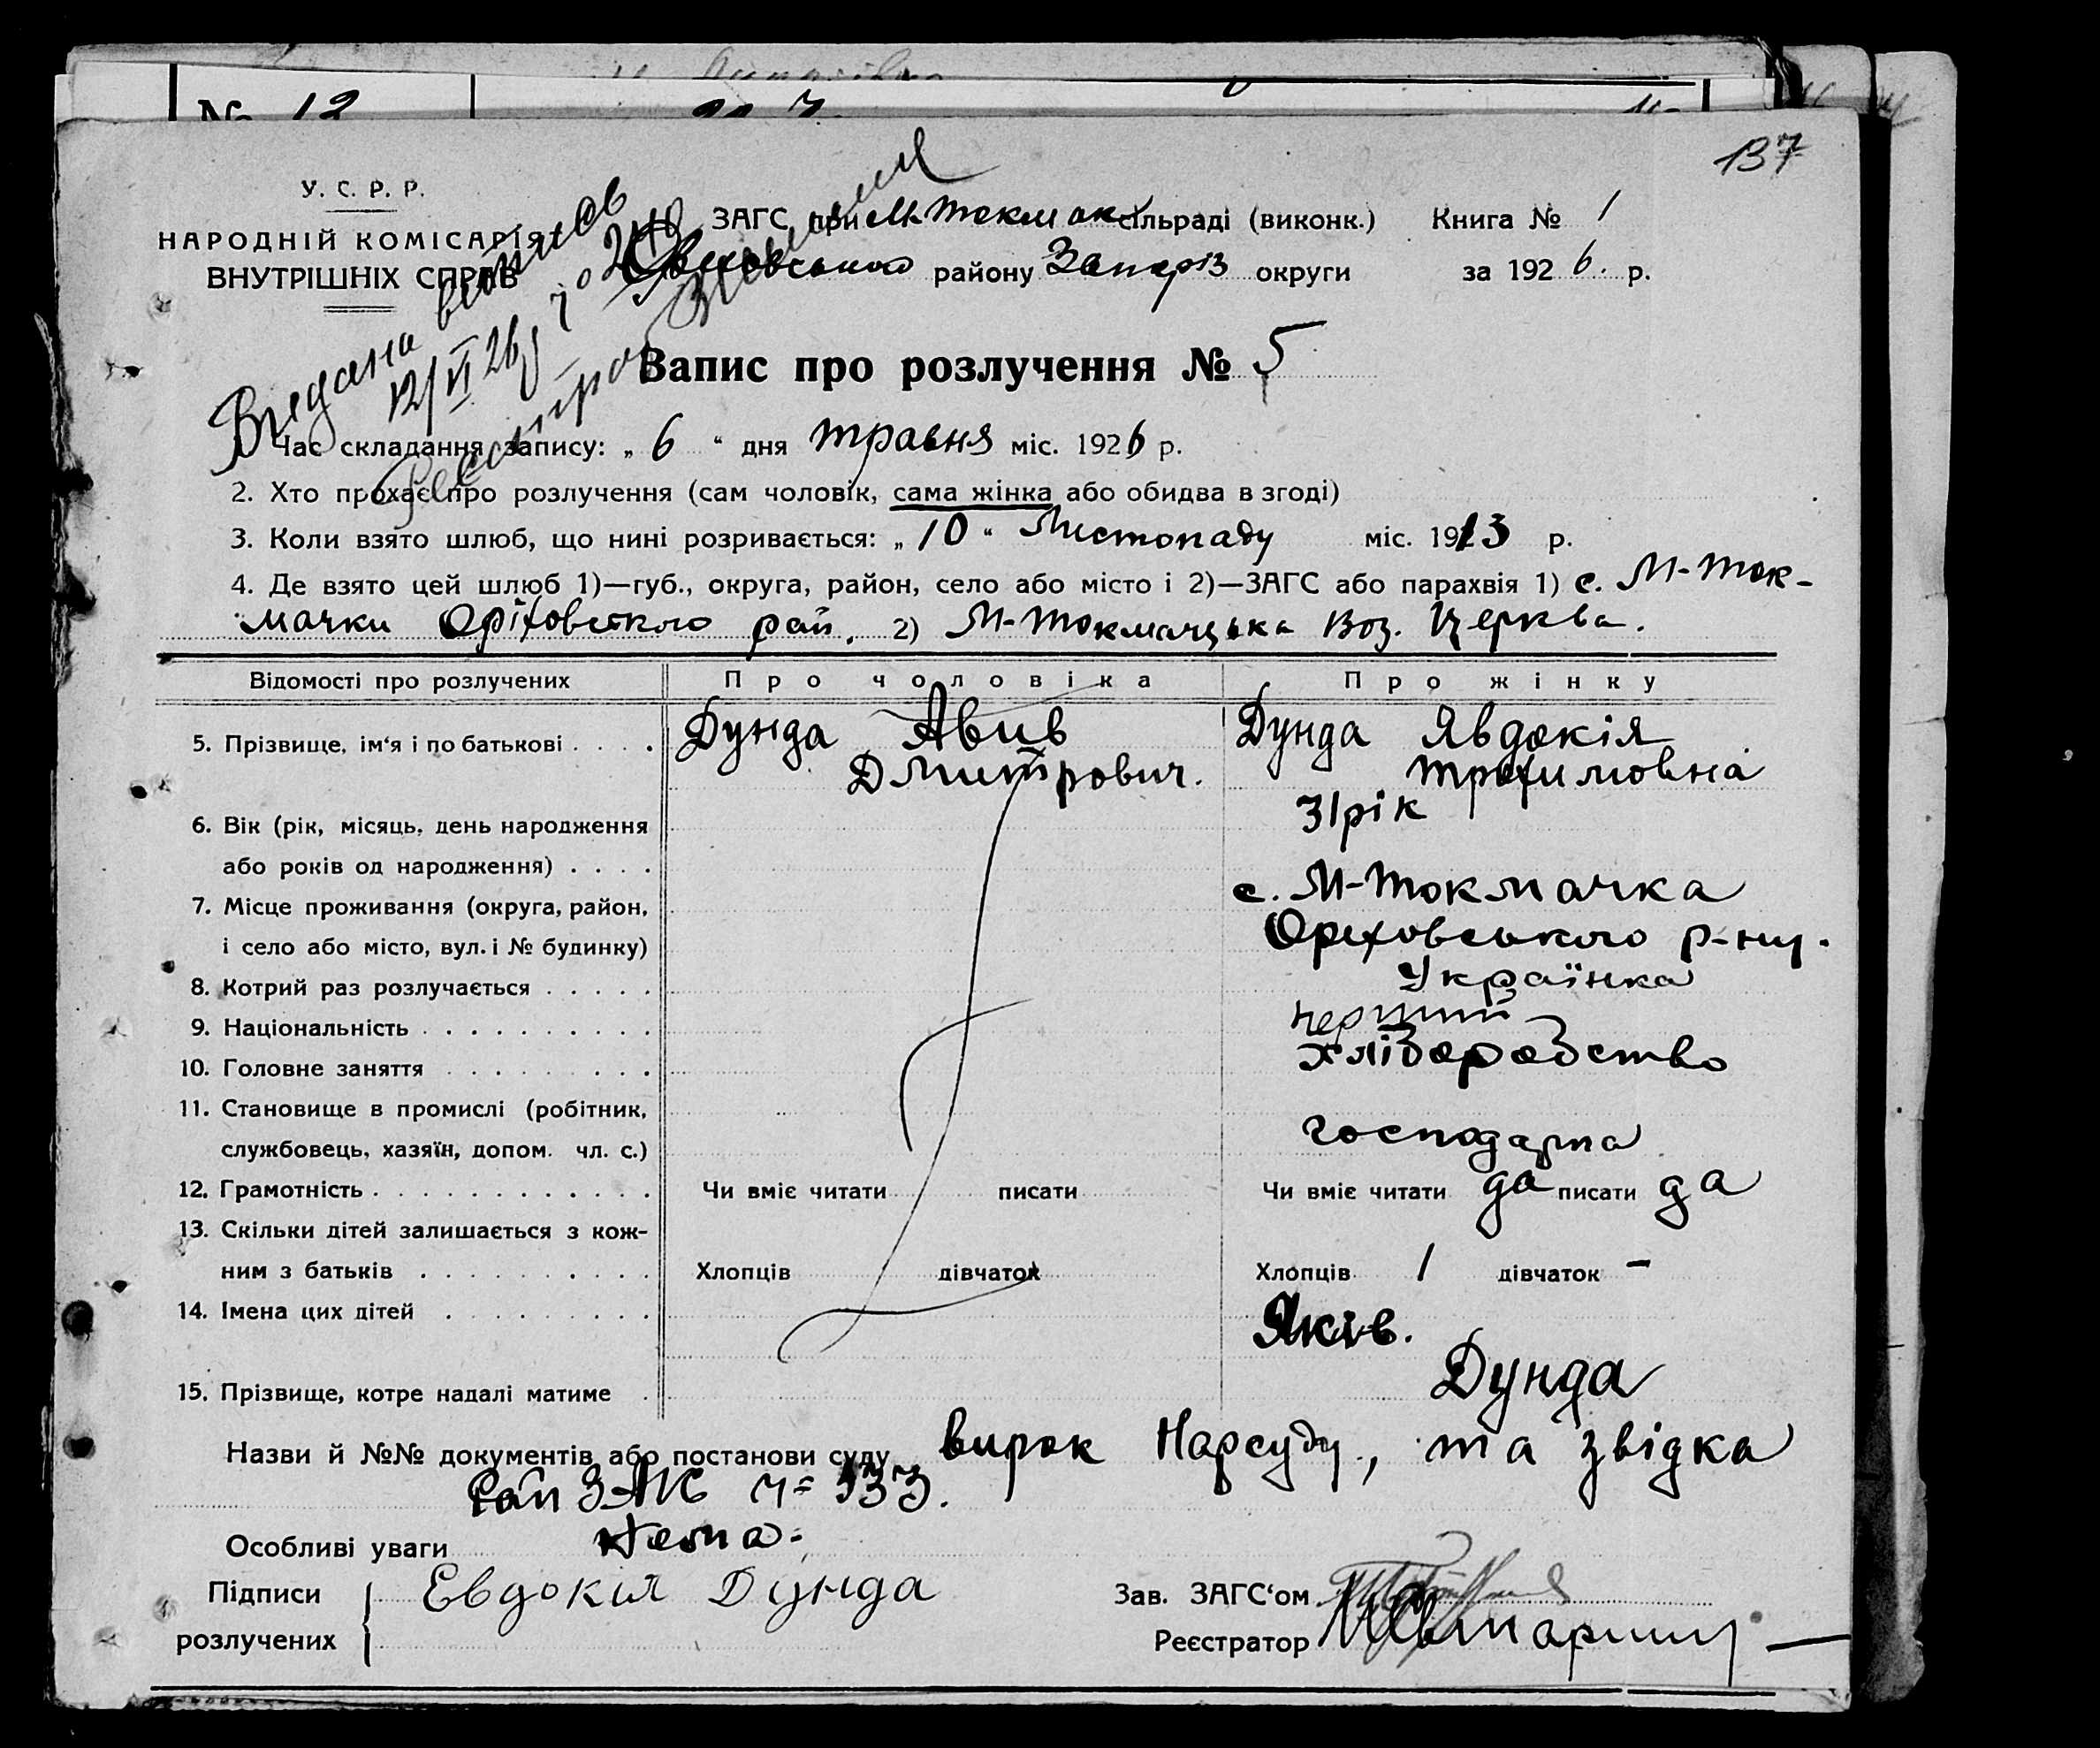 № 12
137
У. С. Р. Р.
НАРОДНІЙ КОМІСАРІЯТ
ВНУТРІШНІХ СПРАВ
ЗАГС при М-Токмак сільраді (виконк.) Книга № 1
району Запоріз округи за 1926. р.
Видана
12/VI 26
Запис про розлучення № 5
Час складання запису: „ 6 “ дня травня міс. 1926 р.
2. Хто прохає про розлучення (сам чоловік, сама жінка або обидва в згоді)
3. Коли взято шлюб, що нині розривається: „ 10 “ Листопаду міс. 1913 р.
4. Де взято цей шлюб 1)—губ., округа, район, село або місто і 2)—ЗАГС або парахвія 1) с. М-Ток-
мачки Оріховського рай. 2) М-Токмачцька Воз. Церква.
Відомості про розлучених Про чоловіка Про жінку
5. Прізвище, ім'я і по батькові . . . . Дунда Авив Дунда Явдокія
Дмитрович. Трохимовна
6. Вік (рік, місяць, день народження 31 рік
або років од народження) . . . .
7. Місце проживання (округа, район, с. М-Токмачка
і село або місто, вул. і № будинку) Ореховського р-ну.
8. Котрий раз розлучається . . . . . Українка
9. Національність . . . . . . . . . . перший
10. Головне заняття . . . . . . . . . хліборобство
11. Становище в промислі (робітник,
службовець, хазяїн, допом. чл. с.) господарка
12. Грамотність . . . . . . . . . . . . Чи вміє читати писати Чи вміє читати да писати да
13. Скільки дітей залишається з кож-
ним з батьків . . . . . . . . . . Хлопців дівчаток Хлопців 1 дівчаток –
14. Імена цих дітей . . . . . . . . . Яків.
15. Прізвище, котре надалі матиме . Дунда
Назви й №№ документів або постанови суду вирок Нарсуду, та звідка
рай ЗАГС ч= 133.
Особливі уваги Нема.
Підписи Евдокія Дунда Зав. ЗАГС'ом
розлучених Реєстратор